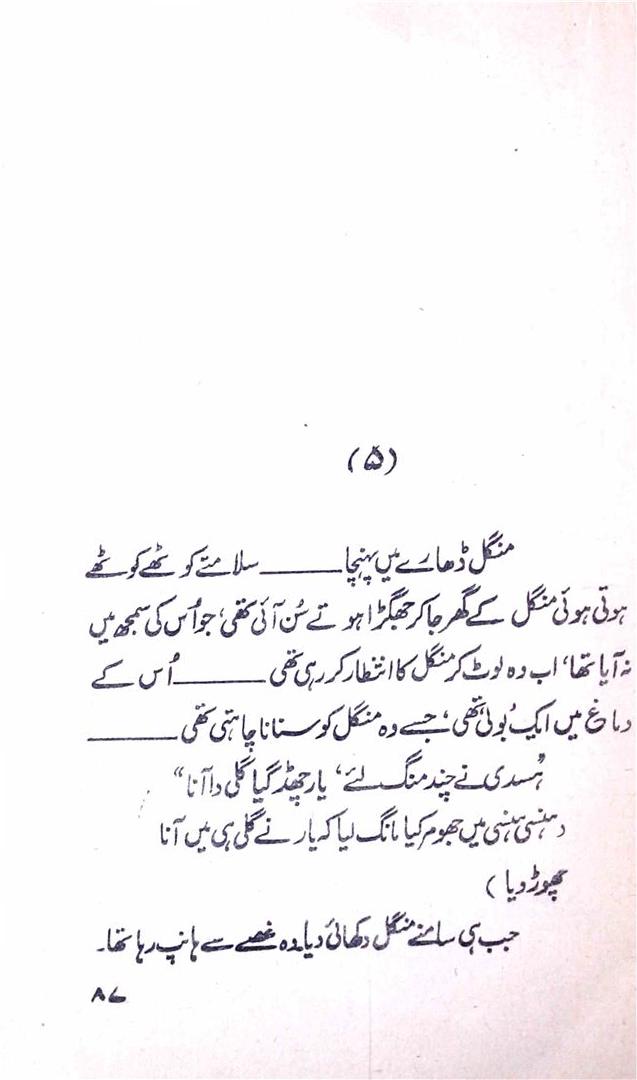 (۵)
منگل ڈھارے میں پہنچا ــــــــ سلامتے کوٹھے کوٹھے
ہوتی ہوئی منگل کے گھر جا کر جھگڑا ہوتے سُن آئی تھی، جو اُس کی سمجھ میں
نہ آیا تھا، اب وہ لوٹ کر منگل کا انتظار کر رہی تھی ــــــــ اُس کے
دماغ میں ایک بُولی تھی، جسے وہ منگل کو سنانا چاہتی تھی ــــــــ
ہُسدی نے چند منگ لئے، یار چھڈ گیا گلی دا آنا“
(ہنسی ہنسی میں جھومر کیا مانگ لیا کہ یار نے گلی ہی میں آنا
چھوڑ دیا)
جب ہی سامنے منگل دکھائی دیا۔ وہ غصے سے ہانپ رہا تھا۔
۸۷